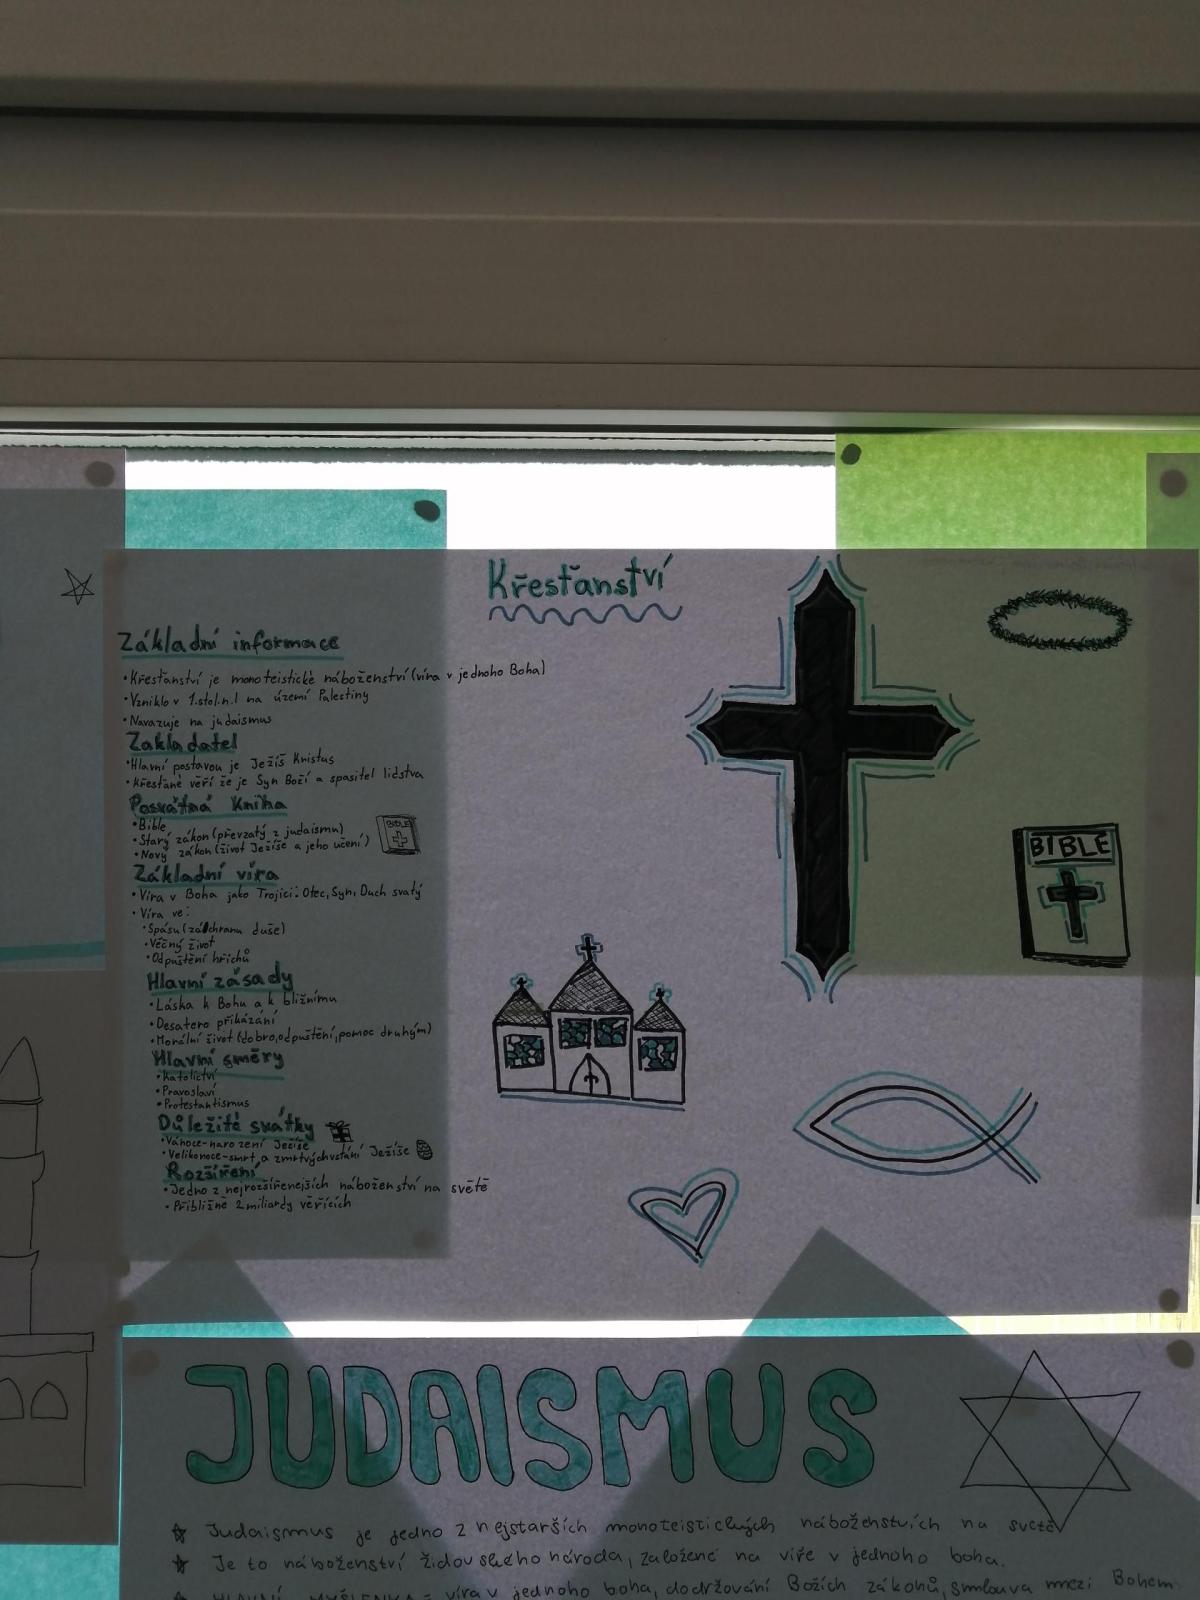 Křesťanství
Základní informace
•Křesťanství je monoteistické náboženství (víra v jednoho Boha)
•Vzniklo v 1.stol.n.l na území Palestiny
•Navazuje na judaismus
Zakladatel
•Hlavní postavou je Ježíš Kristus
•křesťané věří že je Syn Boží a spasitel lidstva
Posvátná kniha
•Bible
•Starý zákon (převzatý z judaismu)
•Nový zákon (život Ježíše a jeho učení)
BIBLE
Základní víra
•Víra v Boha jako Trojici: Otec, Syn, Duch svatý
•Víra ve:
•Spásu (záchranu duše)
•Věčný život
•Odpuštění hříchů
Hlavní zásady
•Láska k Bohu a k bližnímu
•Desatero přikázání
•Morální život (dobro,odpuštění,pomoc druhým)
Hlavní směry
•Katolictví
•Pravoslaví
•Protestantismus
Důležité svátky
•Vánoce-narození Ježíše
•Velikonoce-smrt a zmrtvýchvstání Ježíše
Rozšíření
•Jedno z nejrozšířenejších náboženství na světě
•Přibližně 2 miliardy věřících
BIBLE
JUDAISMUS
Judaismus je jedno z nejstarších monoteistických náboženstvích na světě
Je to náboženství židovského národa, založené na víře v jednoho boha.
HLAVNÍ MYŠLENKA = víra v jednoho boha, dodržování Božích zákonů, smlouva mezi Bohem